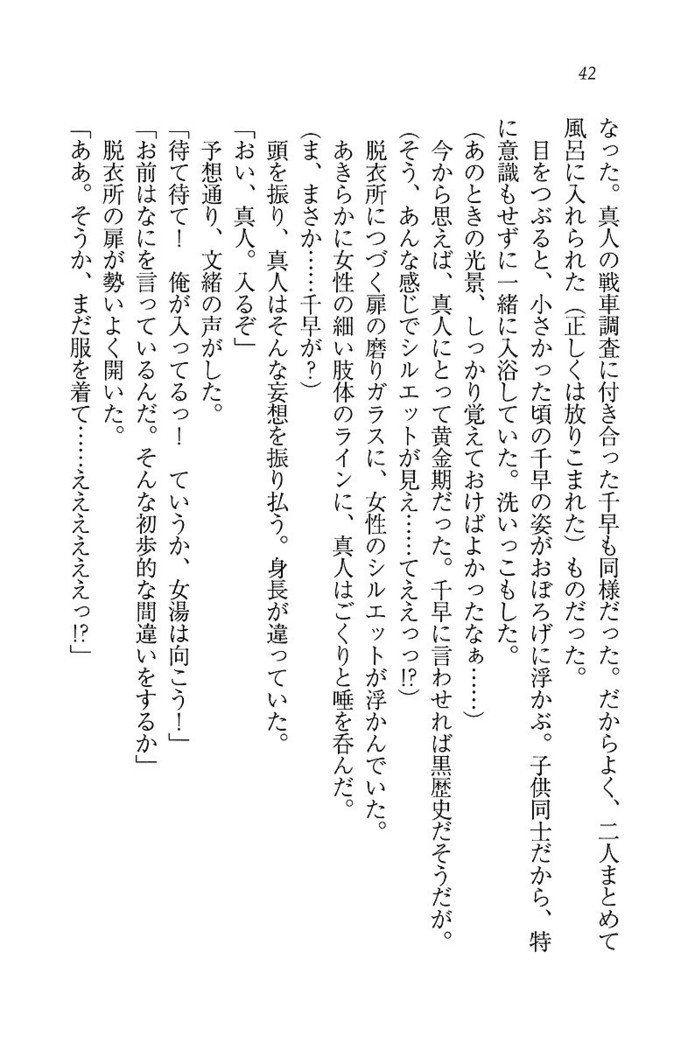 42
なった。真人の戦車調査に付き合った千早も同様だった。だからよく、二人まとめて
風呂に入れられた（正しくは放りこまれた）ものだった。
目をつぶると、小さかった頃の千早の姿がおぼろげに浮かぶ。子供同士だから、特
に意識もせずに一緒に入浴していた。洗いっこもした。
（あのときの光景、しっかり覚えておけばよかったなぁ……）
今から思えば、真人にとって黄金期だった。千早に言わせれば黒歴史だそうだが。
（そう、あんな感じでシルエットが見え……てええっっ!?）
脱衣所につづく扉の磨りガラスに、女性のシルエットが浮かんでいた。
あきらかに女性の細い肢体のラインに、真人はごくりと唾を呑んだ。
（ま、まさか……千早が？）
頭を振り、真人はそんな妄想を振り払う。身長が違っていた。
「おい、真人。入るぞ」
予想通り、文緒の声がした。
「待て待て！　俺が入ってるっ！　ていうか、女湯は向こう！」
「お前はなにを言っているんだ。そんな初歩的な間違いをするか」
脱衣所の扉が勢いよく開いた。
「ああ。そうか、まだ服を着て……ええええええっ!?」